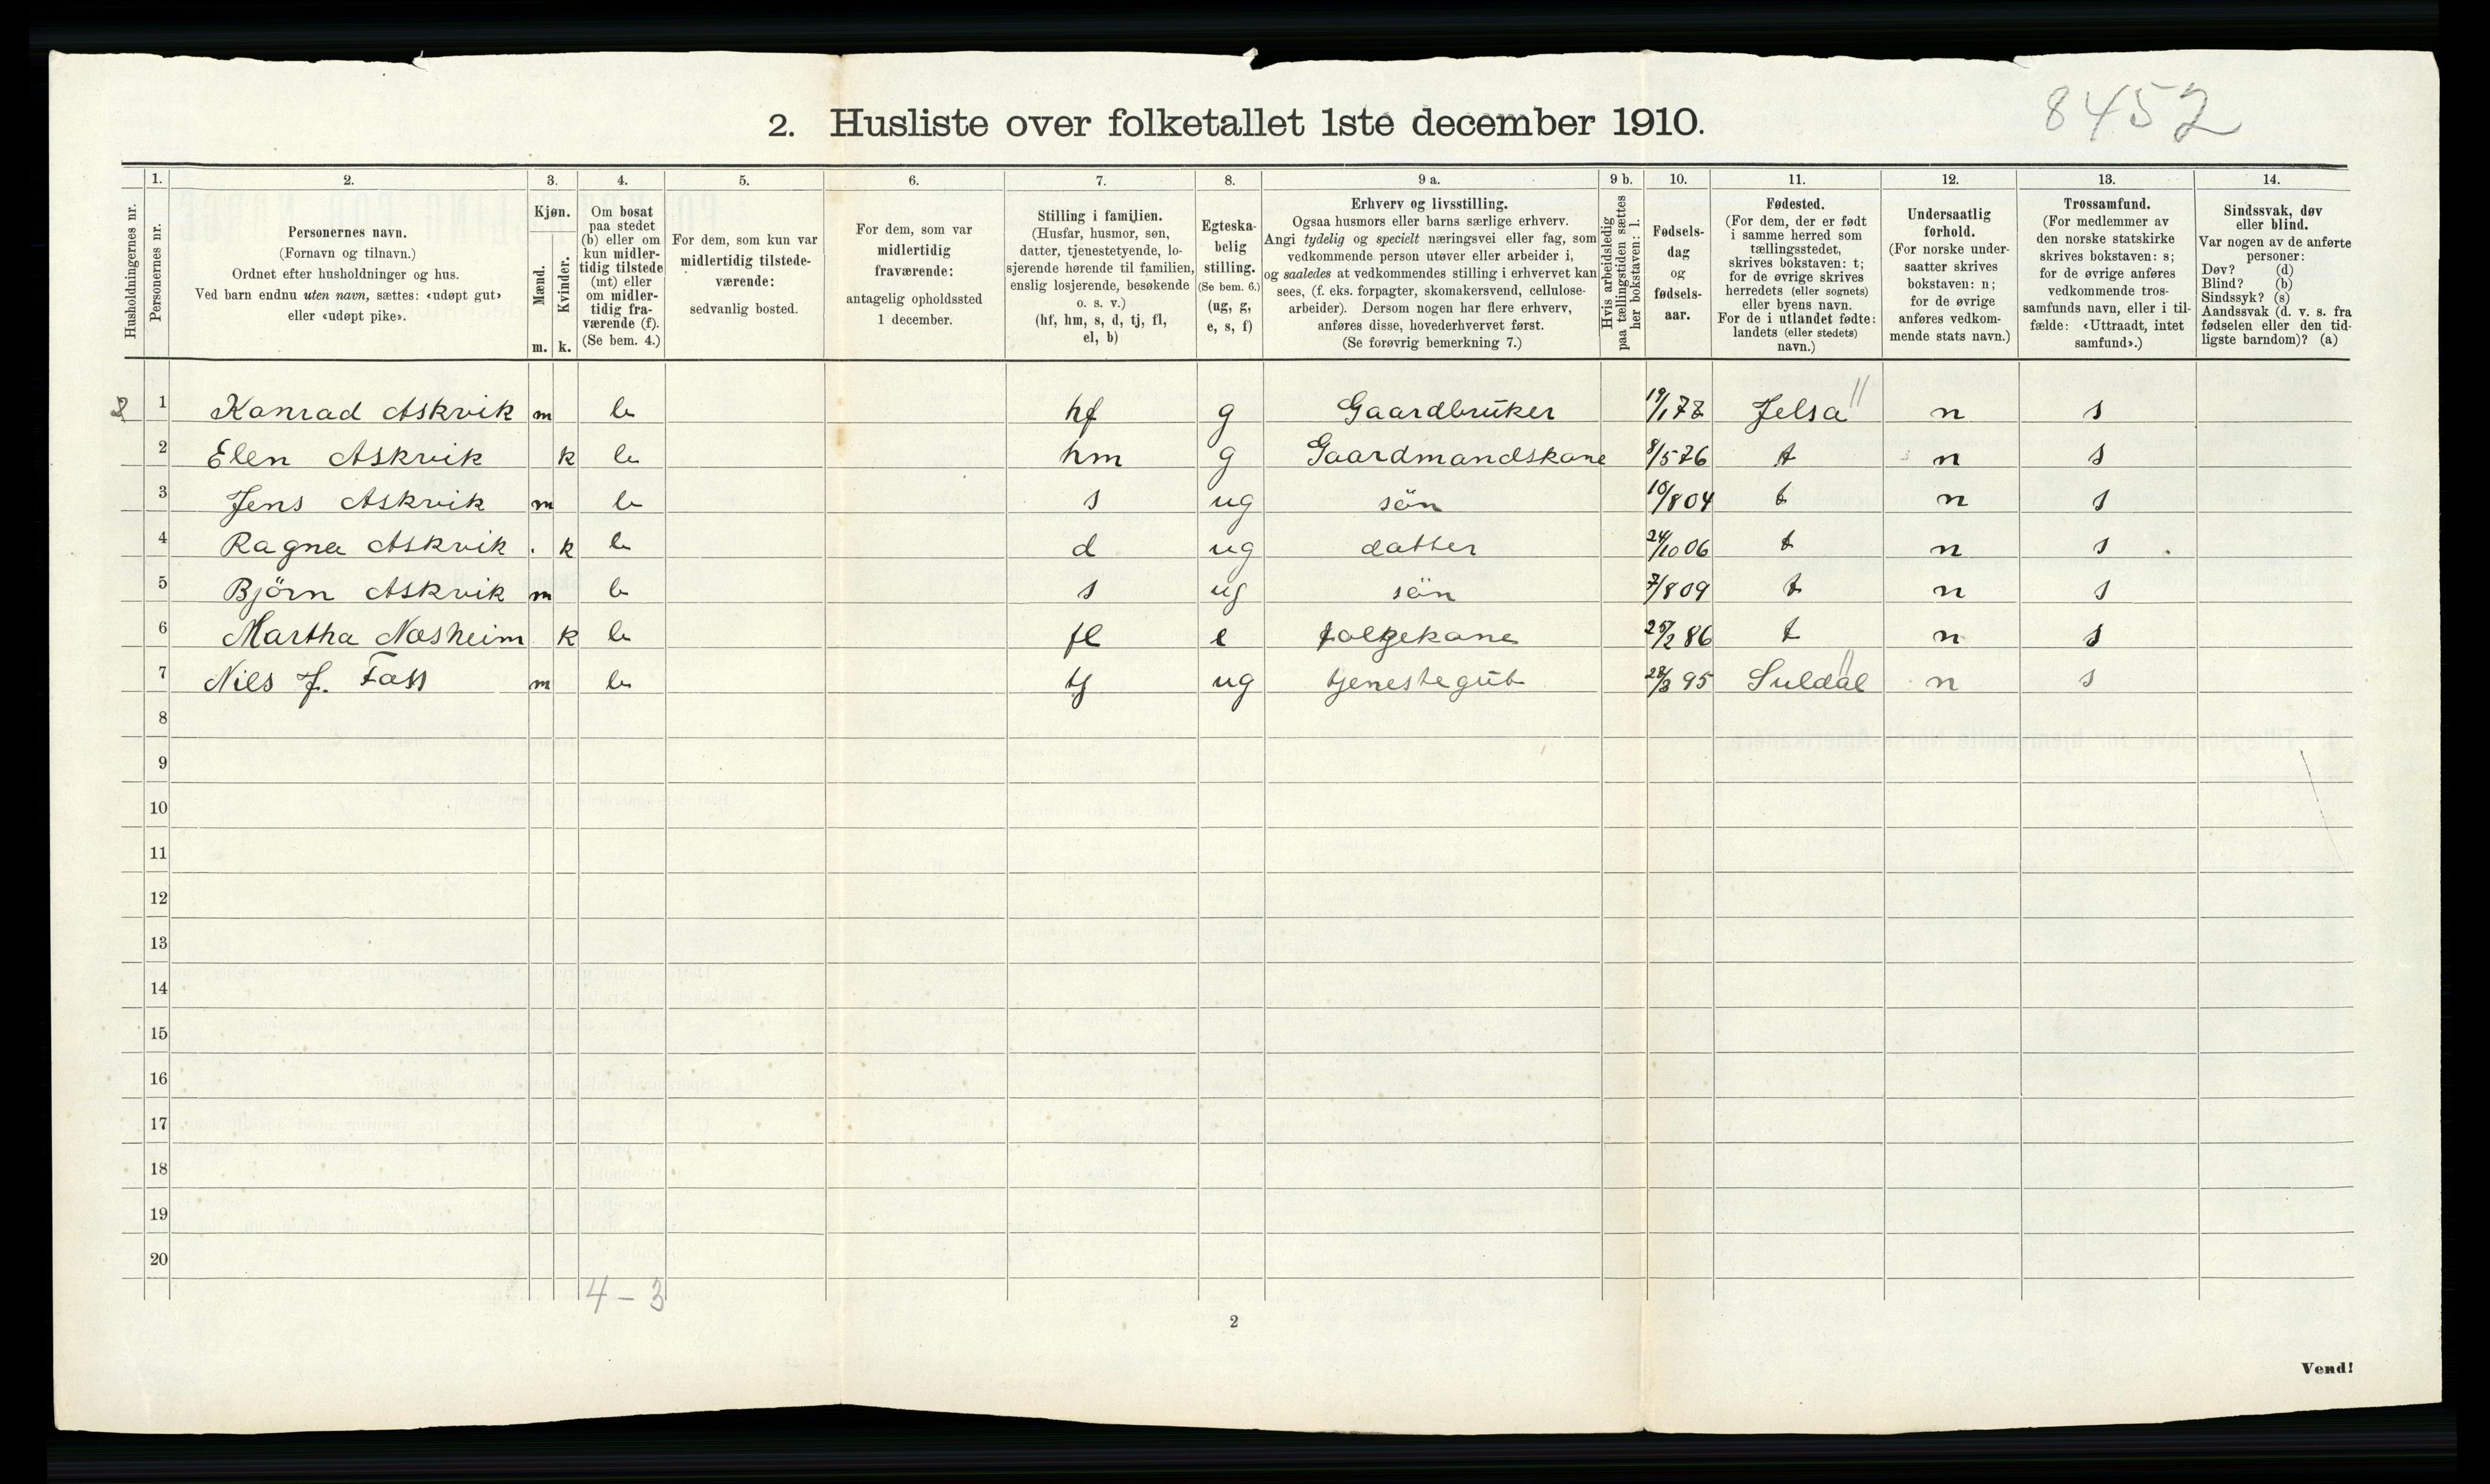 8452
2. Husliste over folketallet 1ste december 1910.
1. 2. 3. 4. 5. 6. 7. 8. 9 a. 9 b. 10. 11. 12. 13. 14.
Husholdningernes nr.
Personernes nr.
Personernes navn.
(Fornavn og tilnavn.)
Ordnet efter husholdninger og hus.
Ved barn endnu uten navn, sættes: «udøpt gut»
eller «udøpt pike».
Kjøn.
Mænd.
Kvinder.
m. k.
Om bosat
paa stedet
(b) eller om
kun midler-
tidig tilstede
(mt) eller
om midler-
tidig fra-
værende (f).
(Se bem. 4.)
For dem, som kun var
midlertidig tilstede-
værende:
sedvanlig bosted.
For dem, som var
midlertidig
fraværende:
antagelig opholdssted
1 december.
Stilling i familien.
(Husfar, husmor, søn,
datter, tjenestetyende, lo-
sjerende hørende til familien,
enslig losjerende, besøkende
o. s. v.)
(hf, hm, s, d, tj, fl,
el, b)
Egteska-
belig
stilling.
(Se bem. 6.)
(ug, g,
e, s, f)
Erhverv og livsstilling.
Ogsaa husmors eller barns særlige erhverv.
Angi tydelig og specielt næringsvei eller fag, som
vedkommende person utøver eller arbeider i,
og saaledes at vedkommendes stilling i erhvervet kan
sees, (f. eks. forpagter, skomakersvend, cellulose-
arbeider). Dersom nogen har flere erhverv,
anføres disse, hovederhvervet først.
(Se forøvrig bemerkning 7.)
Hvis arbeidsledig
paa tællingstiden sættes
her bokstaven: l.
Fødsels-
dag
og
fødsels-
aar.
Fødested.
(For dem, der er født
i samme herred som
tællingsstedet,
skrives bokstaven: t;
for de øvrige skrives
herredets (eller sognets)
eller byens navn.
For de i utlandet fødte:
landets (eller stedets)
navn.)
Undersaatlig
forhold.
(For norske under-
saatter skrives
bokstaven: n;
for de øvrige
anføres vedkom-
mende stats navn.)
Trossamfund.
(For medlemmer av
den norske statskirke
skrives bokstaven: s;
for de øvrige anføres
vedkommende tros-
samfunds navn, eller i til-
fælde: «Uttraadt, intet
samfund».)
Sindssvak, døv
eller blind.
Var nogen av de anførte
personer:
Døv? (d)
Blind? (b)
Sindssyk? (s)
Aandssvak (d. v. s. fra
fødselen eller den tid-
ligste barndom)? (a)
1 Konrad Askvik m b hf g Gaardbruker Jelsa n s
2 Elen Askvik k b hm g Gaardmandskone 8/5 76 t n s
3 Jens Askvik m b s ug sön 10/8 04 t n s
4 Ragna Askvik k b d ug datter 24/10 06 t n s
5 Björn Askvik m b s ug sön 7/8 09 t n s
6 Martha Næsheim k b fl e folgekone 25/2 86 t n s
7 Nils J. m b tj ug tjenestegut 28/3 95 Suldal n s
8
9
10
11
12
13
14
15
16
17
18
19
20
4-3
2
Vend!